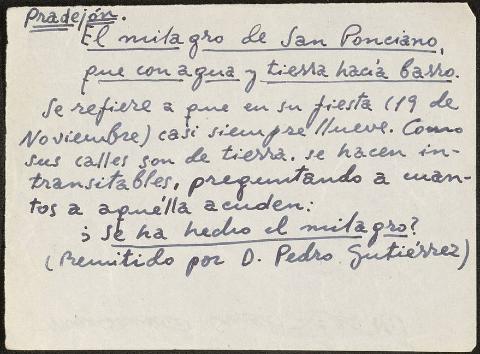 Pradejón.
El milagro de San Ponciano,
que con agua y tierra hacía barro.
Se refiere a que en su fiesta (19 de
Noviembre) casi siempre llueve. Como
sus calles son de tierra, se hacen in-
transitables, preguntando a cuan-
tos a aquélla acuden:
¿ Se ha hecho el milagro?
(Remitido por D. Pedro Gutiérrez)